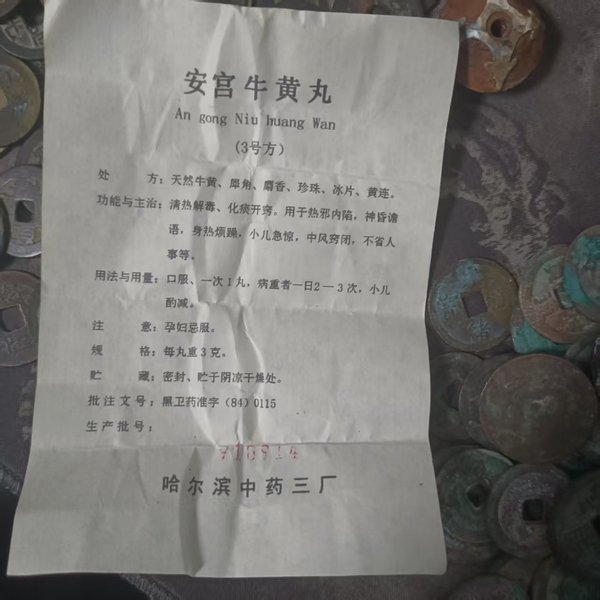 安宫牛黄丸
An gong Niu huang Wan
(3号方)
处 方：天然牛黄、犀角、麝香、珍珠、冰片、黄连。
功能与主治：清热解毒、化痰开窍。用于热邪内陷，神昏谵
语，身热烦躁，小儿急惊，中风窍闭，不省人
事等。
用法与用量：口服、一次1丸，病重者一日2—3次，小儿
酌减。
注 意：孕妇忌服。
规 格：每丸重3克。
贮 藏：密封、贮于阴凉干燥处。
批注文号：黑卫药准字(84)0115
生产批号：
710914
哈尔滨中药三厂